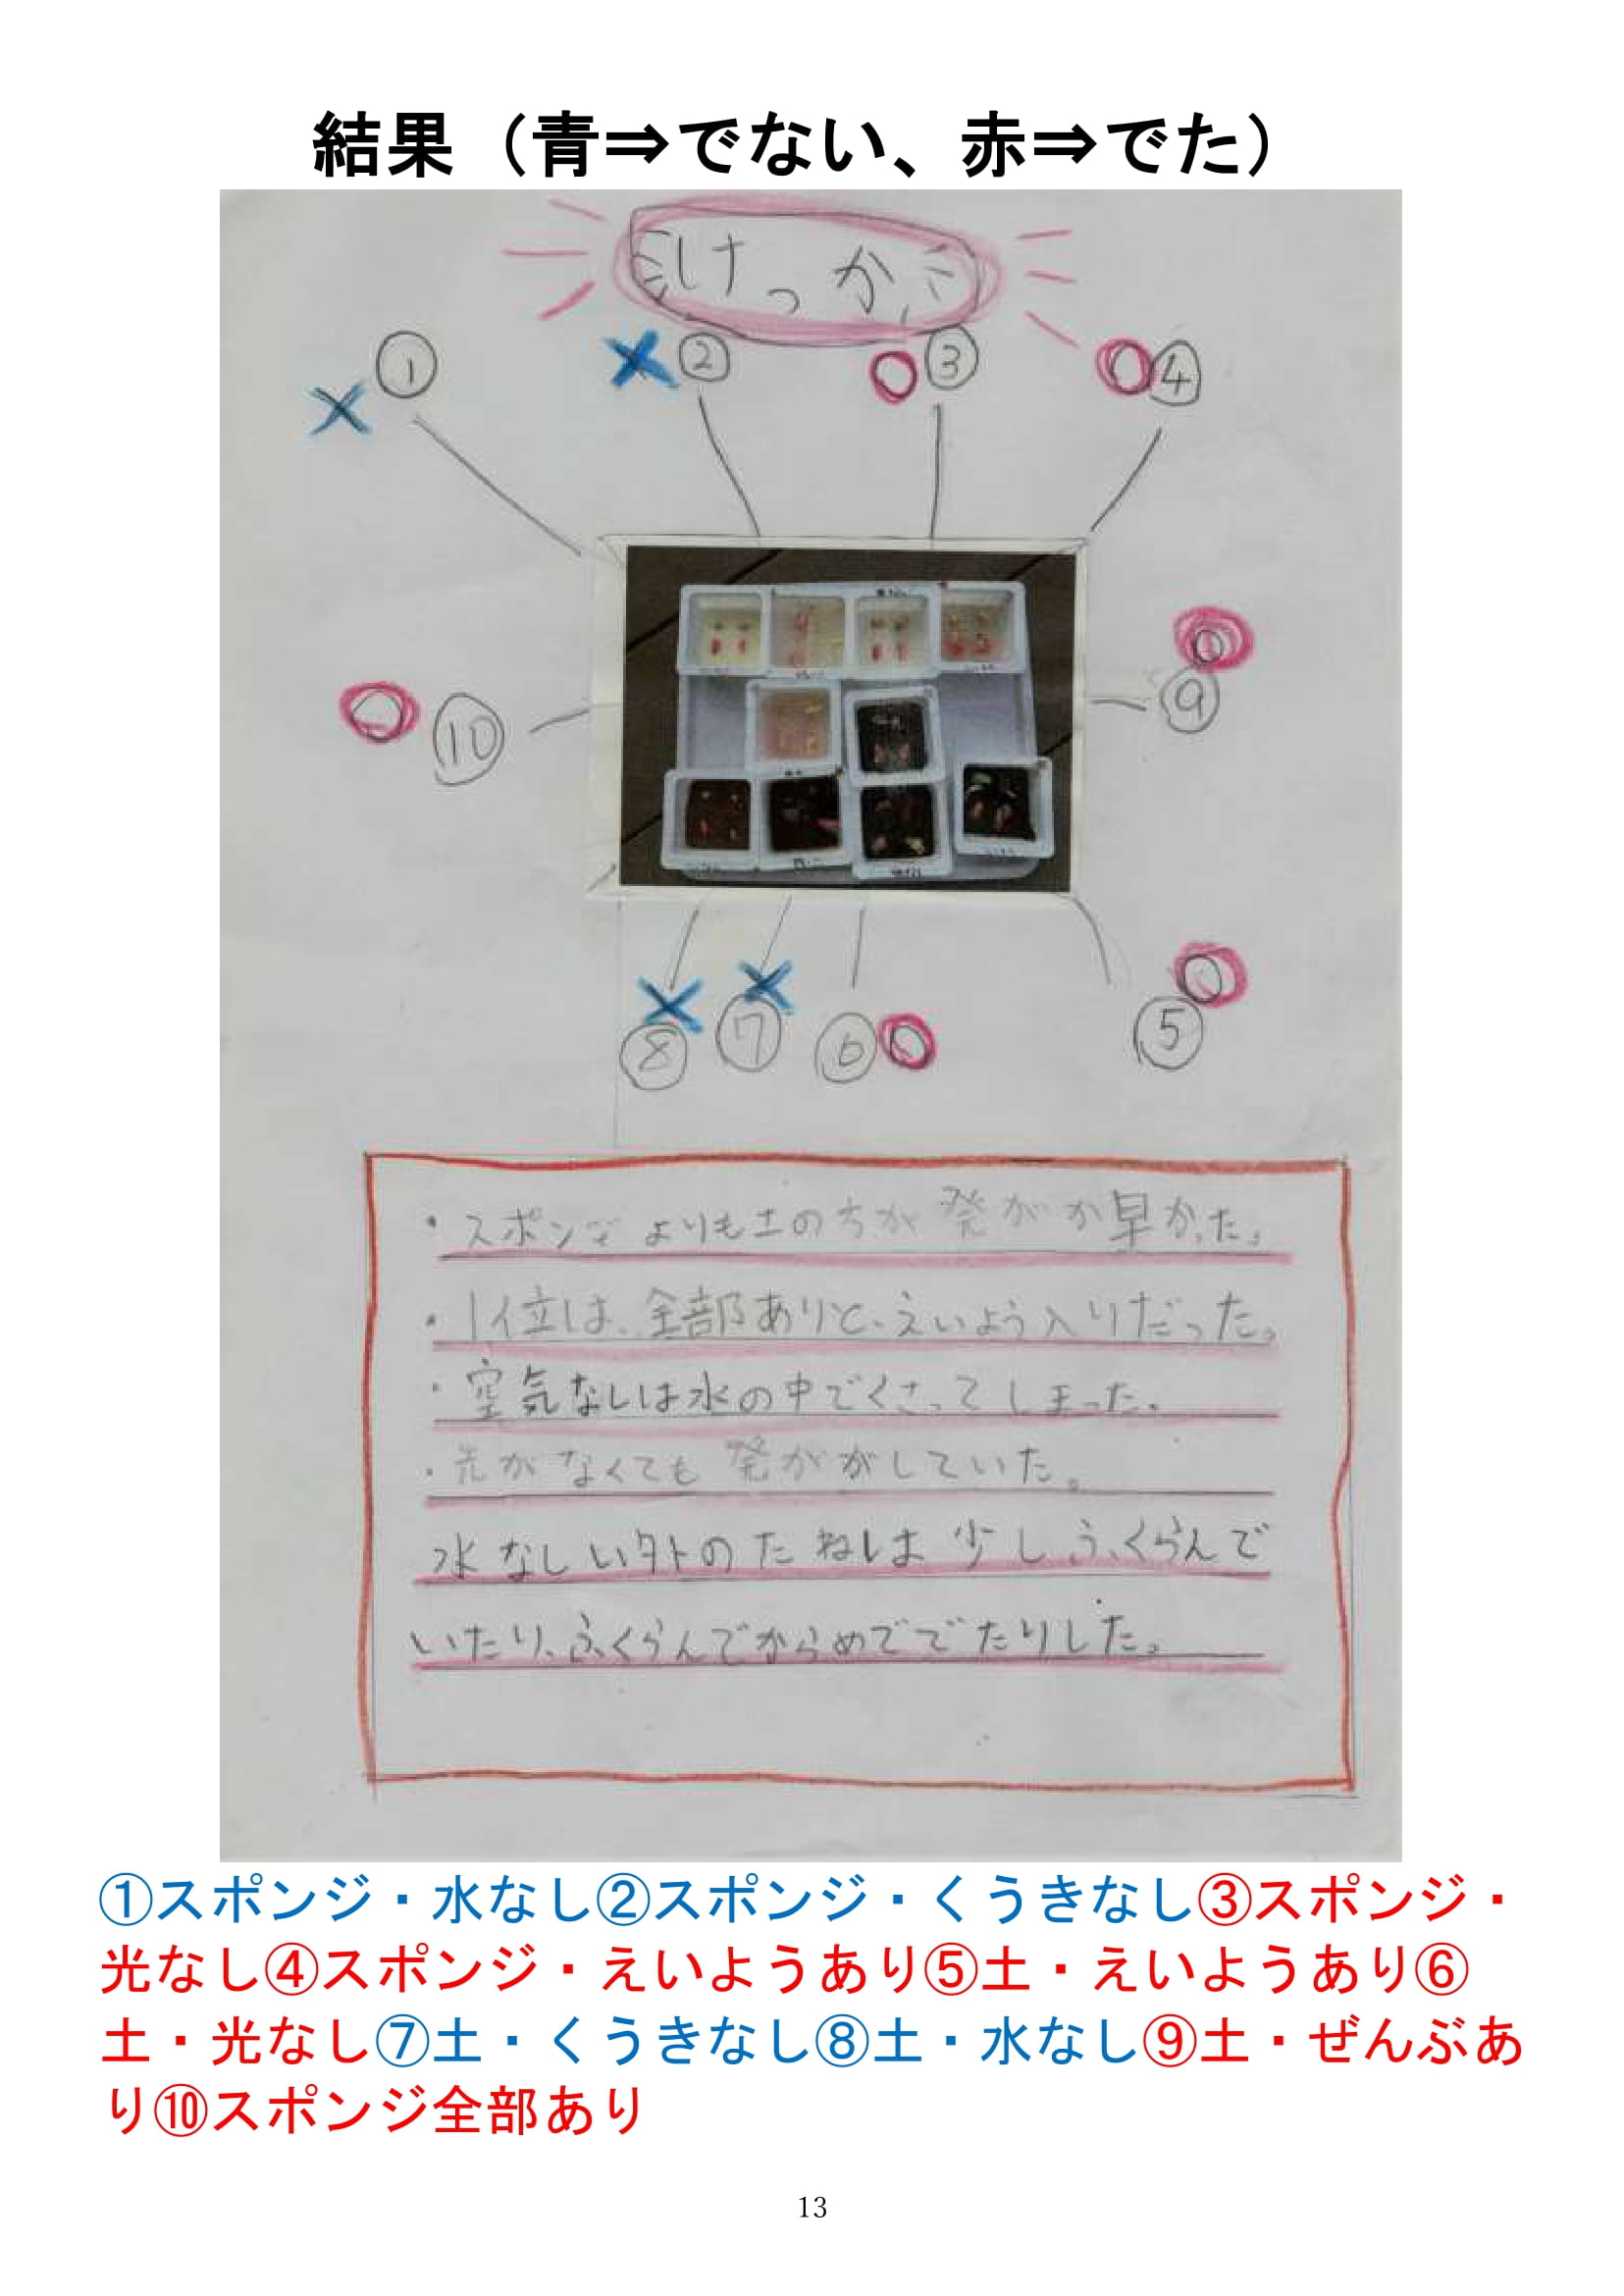 結果（青⇒でない、赤⇒でた）
けっか
① ② ③ ④
⑨
⑩
⑤
⑧ ⑦ ⑥
・スポンジよりも土のちが発がか早かった。
・1位は、全部ありと、えいよう入りだった。
・空気なしは水の中でくさってしまった。
・光がなくても発ががしていた。
水なしい外のたねは少しふくらんで
いたり、ふくらんでからめででたりした。
①スポンジ・水なし②スポンジ・くうきなし③スポンジ・
光なし④スポンジ・えいようあり⑤土・えいようあり⑥
土・光なし⑦土・くうきなし⑧土・水なし⑨土・ぜんぶあ
り⑩スポンジ全部あり
13